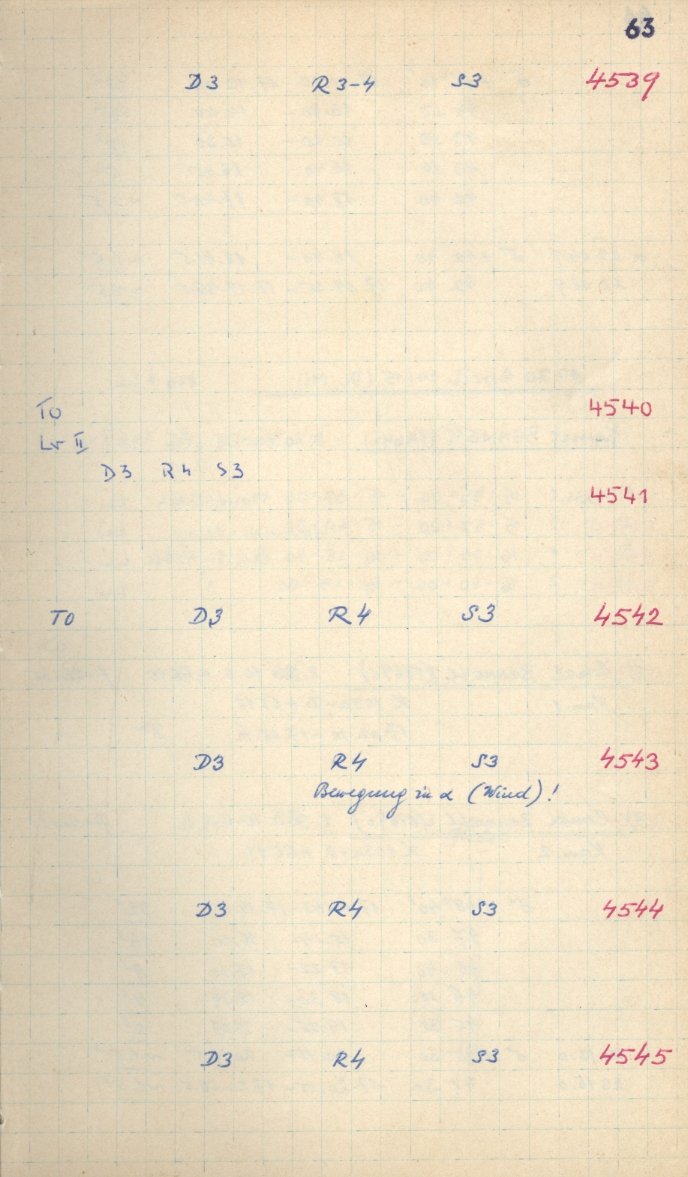 63
D3 R3-4 S3 4539
To 4540
II
D3 R4 S3
4541
To D3 R4 S3 4542
D3 R4 S3 4543
Bewegung in α (Wind)!
D3 R4 S3 4544
D3 R4 S3 4545